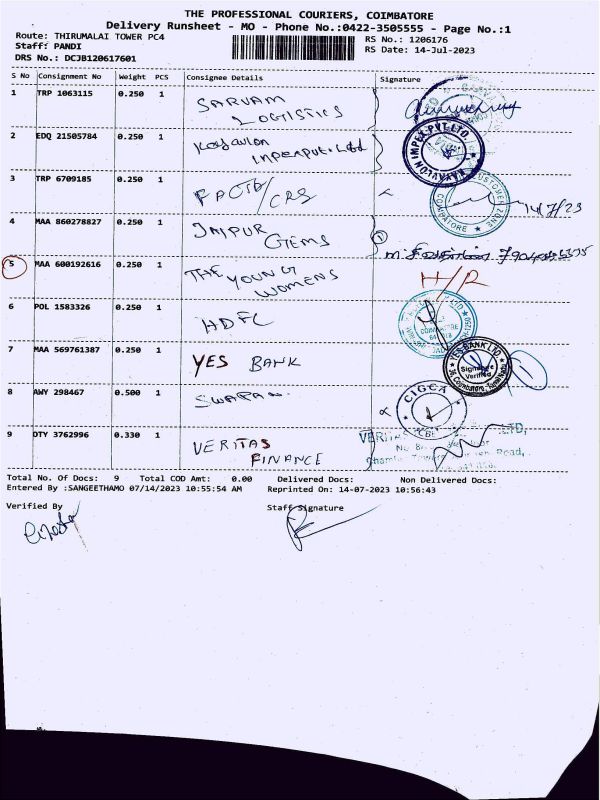 THE PROFESSIONAL COURIERS, COIMBATORE
Delivery Runsheet - MO - Phone No.:0422-3505555 - Page No.:1
Route: THIRUMALAI TOWER PC4
RS No.: 1206176
Staff: PANDI
RS Date: 14-Jul-2023
DRS No.: DCJB120617601
S No Consignment No Weight PCS Consignee Details Signature
1 TRP 1063115 0.250 1 SARVAM LOGISTICS
2 EDQ 21505784 0.250 1
KAYAVLON IMPEX PVT. LTD.
3 TRP 6709185 0.250 1 FACTO/CRS
CUSTOMER ZONE
COIMBATORE
14/7/23
4 MAA 860278827 0.250 1 JAIPUR GEMS
1
5 MAA 600192616 0.250 1 THE YOUNG WOMENS
H/R
6 POL 1583326 0.250 1 HDFC
7 MAA 569761387 0.250 1 YES BANK
YES BANK LTD
Signature Verified
8 AWY 298467 0.500 1
CIGCA
9 DTY 3762996 0.330 1 VERITAS FINANCE
Total No. Of Docs: 9 Total COD Amt: 0.00 Delivered Docs: Non Delivered Docs:
Entered By :SANGEETHAMO 07/14/2023 10:55:54 AM Reprinted On: 14-07-2023 10:56:43
Verified By Staff Signature